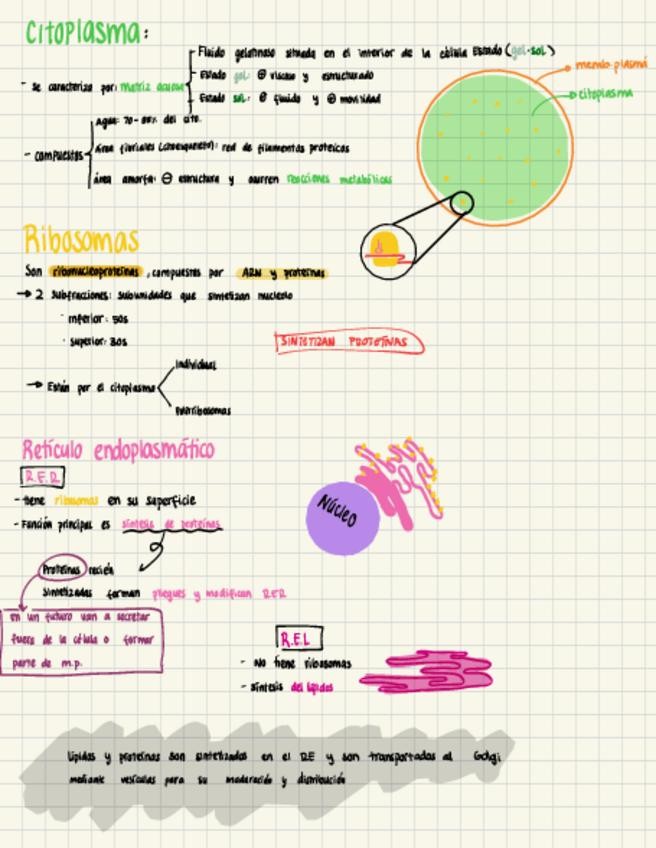 Citoplasma:
Fluido gelatinoso situada en el interior de la célula Estado (gel-sol)
- se caracteriza por: matriz acuosa
Estado gel: ⊕ viscoso y estructurado
Estado sol: ⊕ fluido y ⊕ movilidad
memb. plasmá
citoplasma
- compuestos
Agua: 70-80% del cito.
área fibrilares (citoesqueleto): red de filamentos proteicos
área amorfa: ⊖ estructura y ocurren reacciones metabólicas
Ribosomas
Son ribonucleoproteínas, compuestos por ARN y proteínas
→ 2 subfracciones: subunidades que sintetizan nucleolo
· inferior: 50s
· superior: 30s
SINTETIZAN PROTEÍNAS
→ Están por el citoplasma
Individual
Polirribosomas
Retículo endoplasmático
R.E.R
- tiene ribosomas en su superficie
- Función principal es síntesis de proteínas
Núcleo
Proteínas recién
sintetizadas forman pliegues y modifican RER
en un futuro van a secretar
fuera de la célula o formar
parte de m.p.
R.E.L
- No tiene ribosomas
- síntesis del lípidos
lípidos y proteínas son sintetizados en el RE y son transportadas al Golgi
mediante vesículas para su maduración y distribución